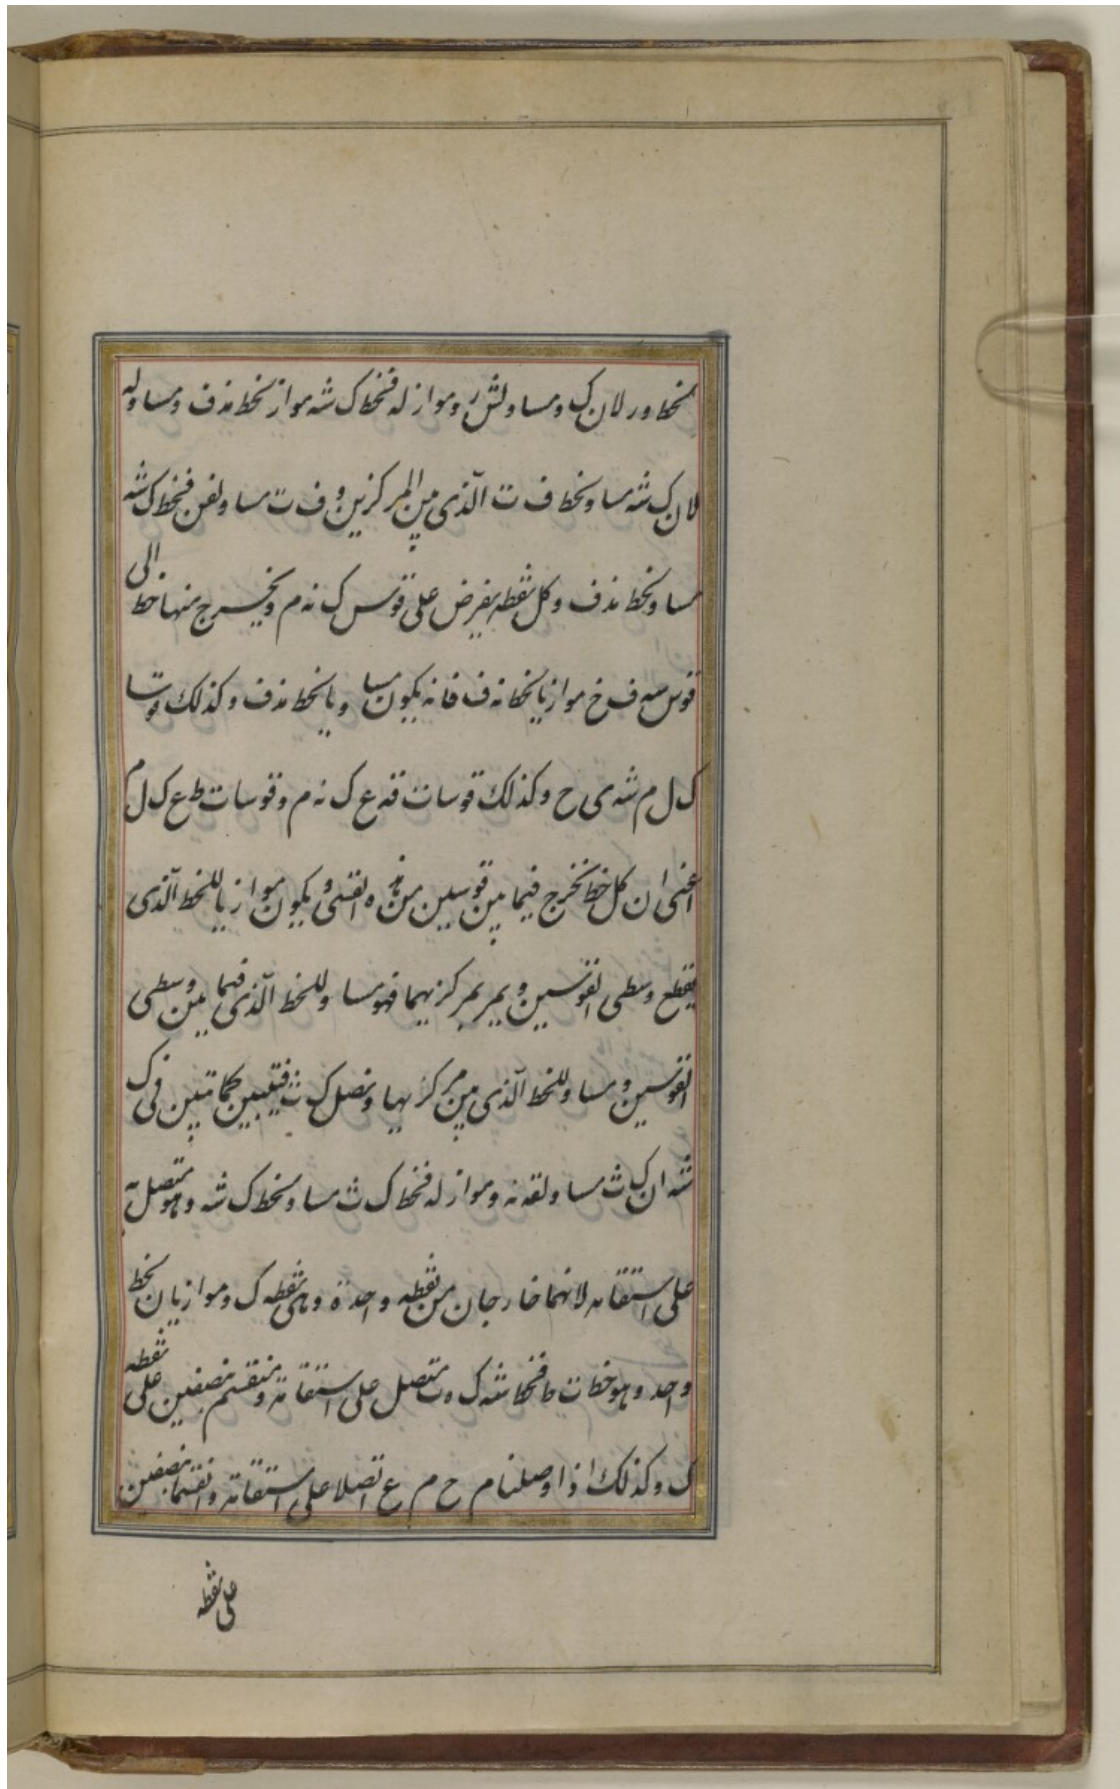 لخط ور لان ك و مساو لش ر و مواز له فخط ك شه مواز لخط نه ف و مساو له
لان ك شه مساو لخط ف ت الذى بين المركزين و ف ت مساو لفن فخط ك شه
مساو لخط نه ف وكل نقطه يفرض على قوس ك نه م و يخرج منها خط الى
قوس سع ف خ موازيا لخط نه ف فانه يكون مساويا لخط نه ف وكذلك قوسا
ك ل م شه ى ح وكذلك قوسا ت قه ع ك نه م و قوسا ت ط ع ك ل م
اعنى ان كل خط يخرج فيما بين قوسين من هذه القسى و يكون موازيا للخط الذى
يقطع وسطى القوسين و يمر بمركزيهما فهو مساو للخط الذى فيما بين وسطى
القوسين و مساو للخط الذى بين مركزيهما و نصل ك ث فيتبين كما تبين فى ك
شه ان ك ث مساو لقه نه و مواز له فخط ك ث مساو لخط ك شه و هو متصل به
على استقامه لانهما خارجان من نقطه واحدة و هى نقطه ك و موازيان لخط
واحد و هو خط ت ط فخط شه ك ه ث متصل على استقامة و منقسم بنصفين على نقطه
ك وكذلك اذا وصلنا م ح م ع اتصلا على استقامة و انقسما بنصفين
على نقطه